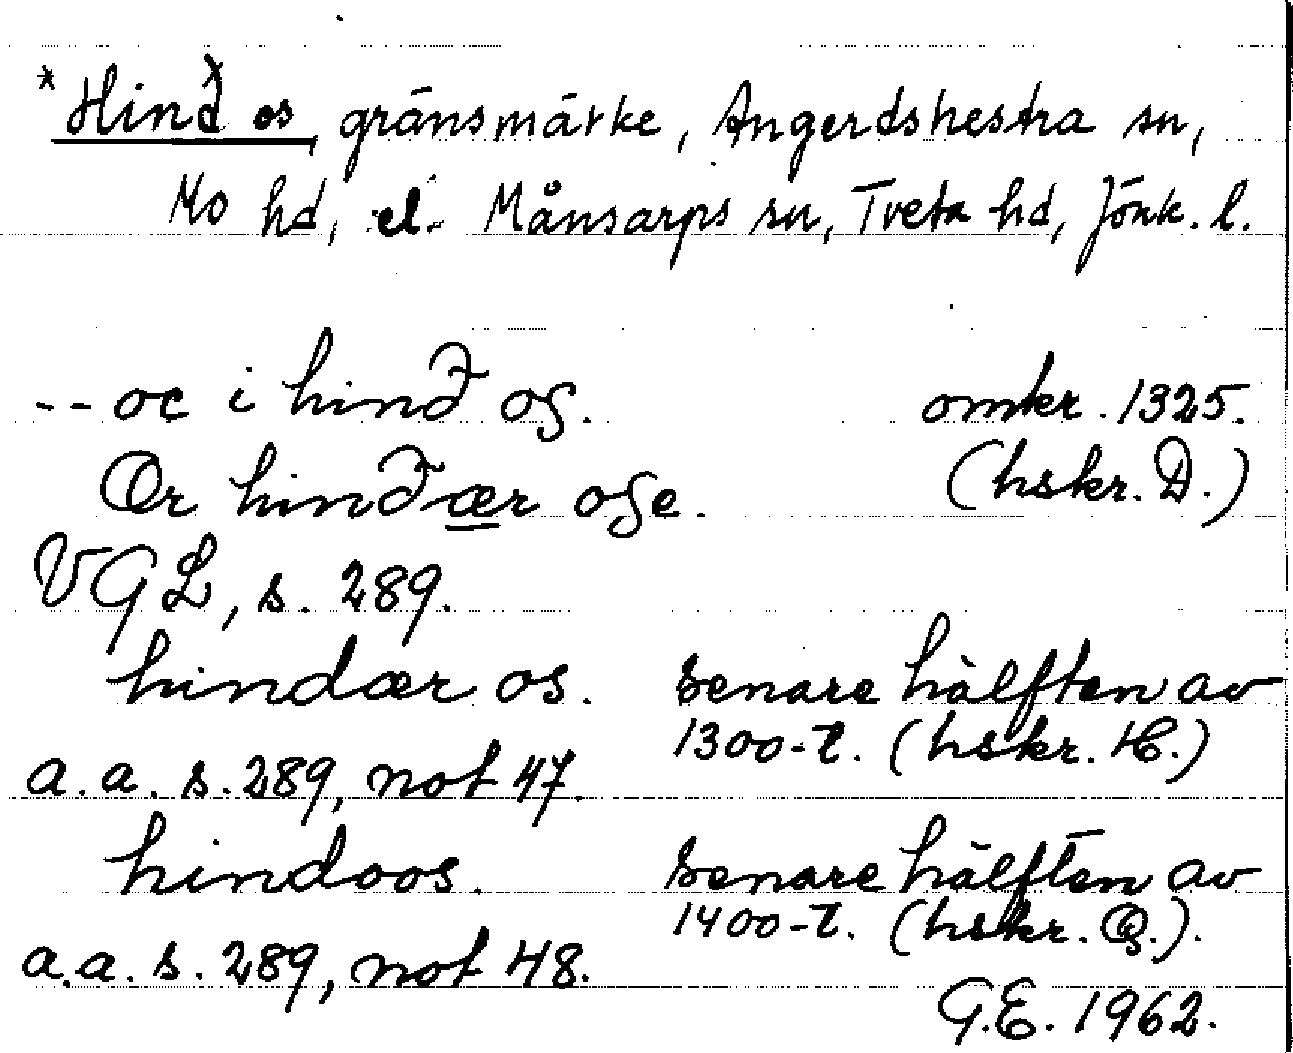 *Hinđ os, gränsmärke, Angerdshestra sn,
Mo hd, el. Månsarps sn, Tveta hd, Jönk. l.
-- oc i hinđ os. omkr. 1325.
Or hinđær ose. (hskr. D.)
VGL, s. 289.
hindær os. senare hälften av
1300-t. (hskr. H.)
a.a. s. 289, not 47.
hindoos. senare hälften av
1400-t. (hskr. Q.).
a.a. s. 289, not 48.
G.E. 1962.